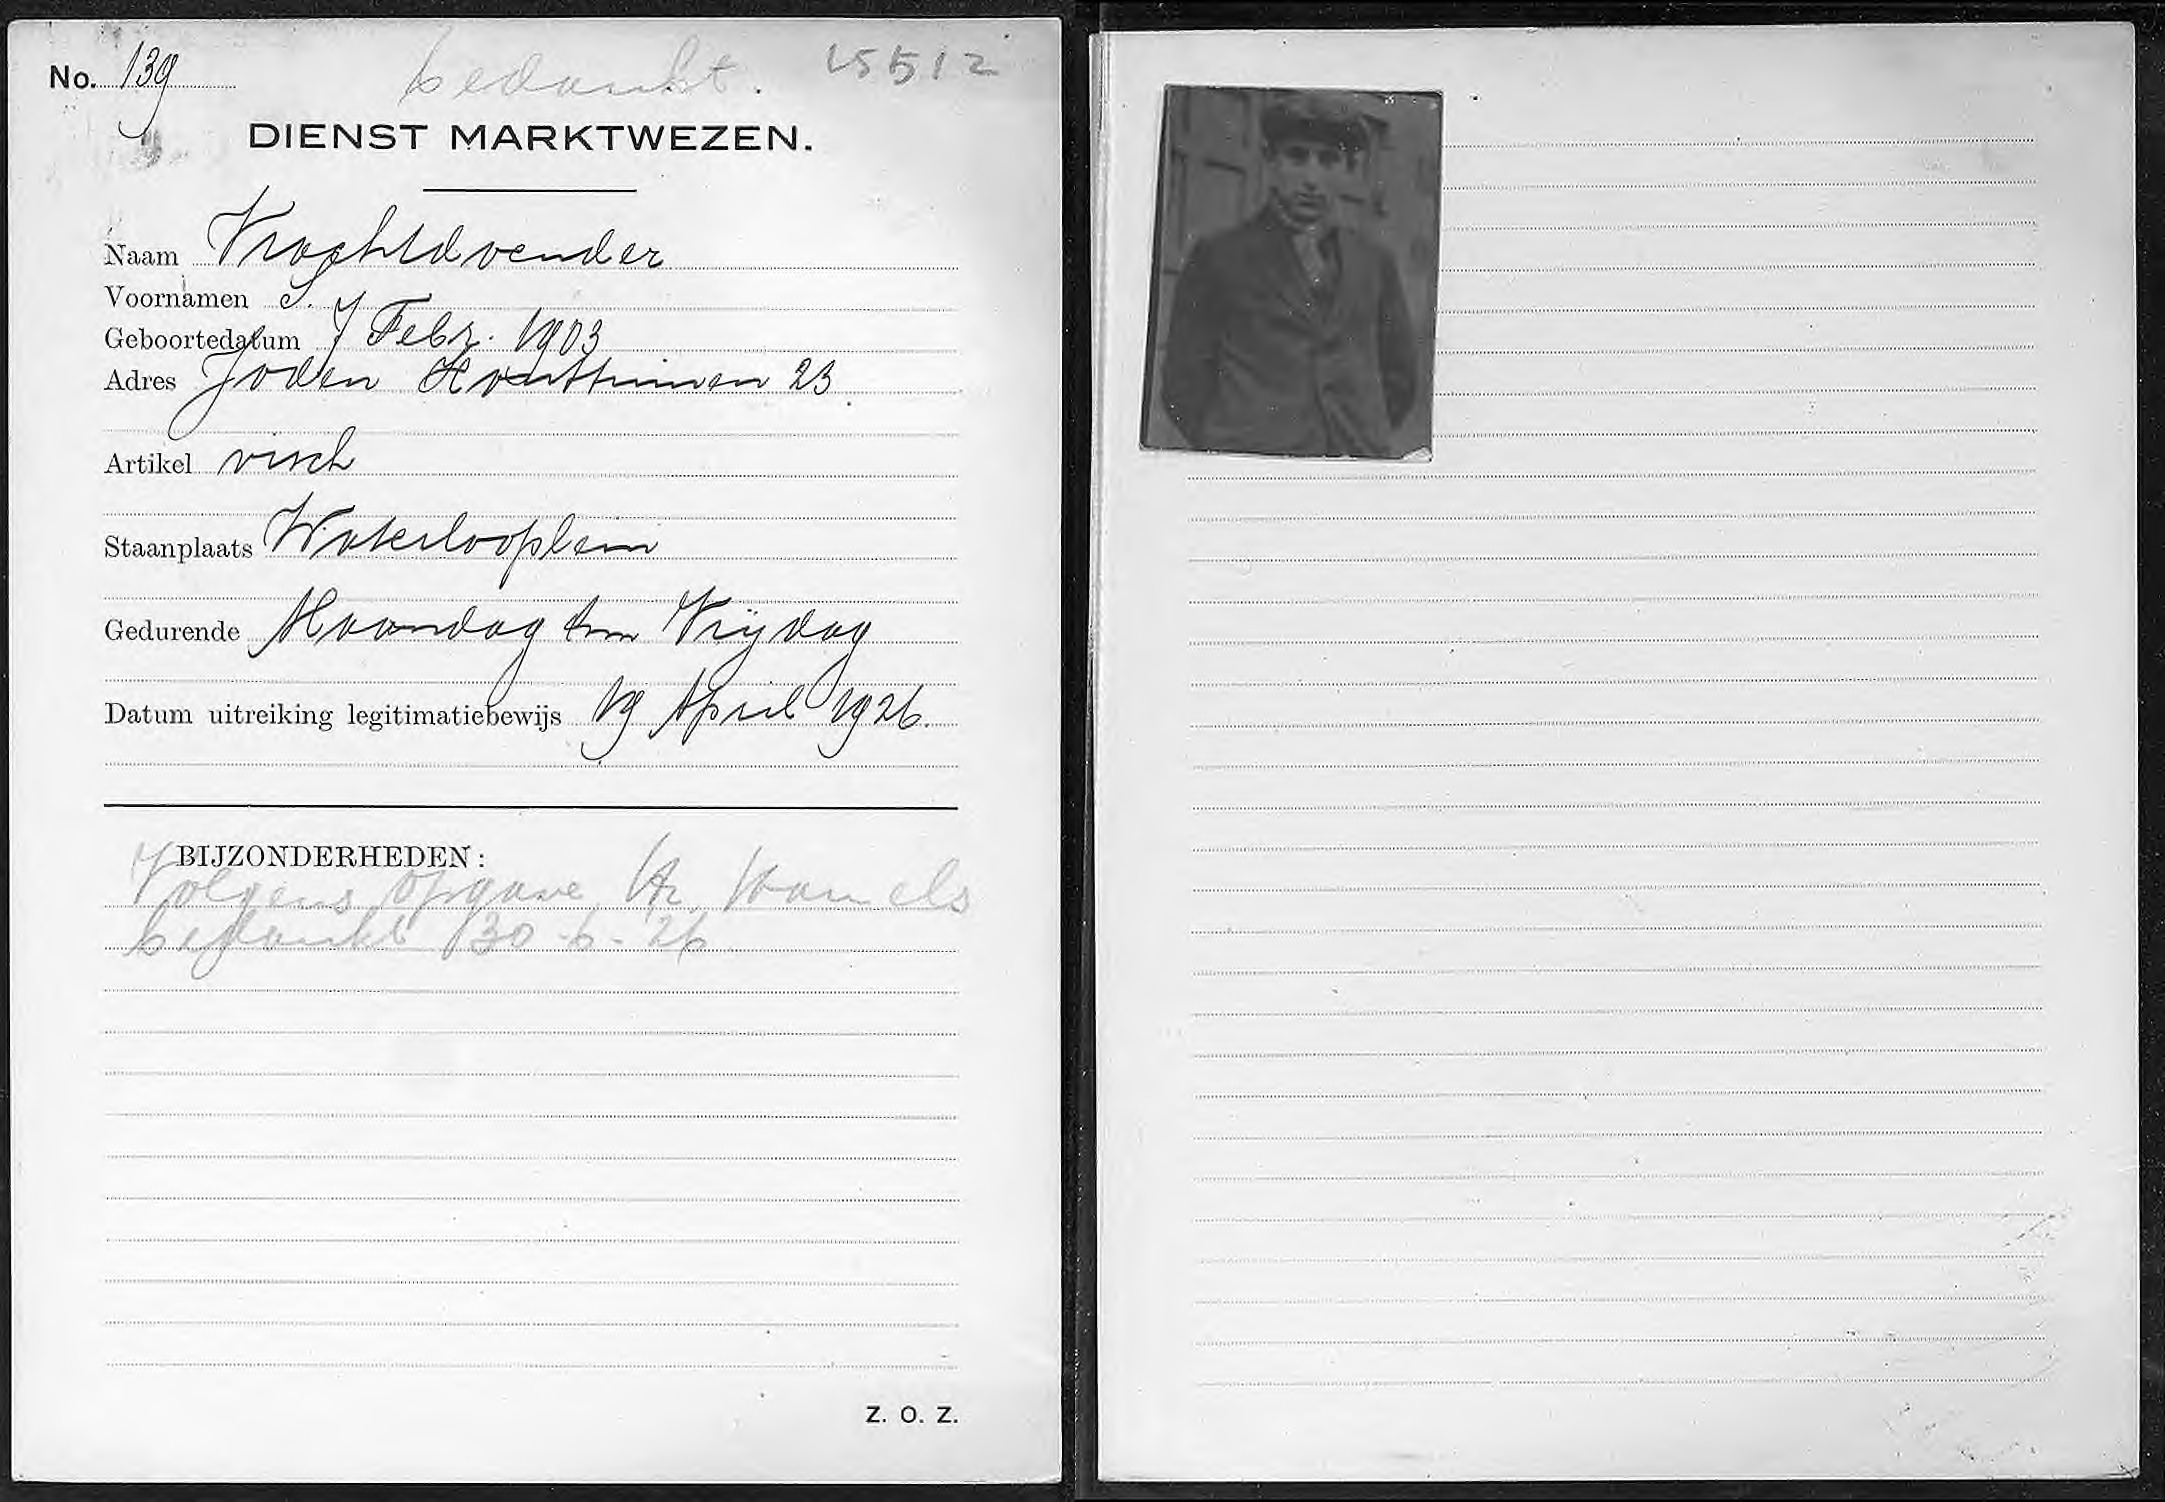 No. 139
bedankt. 15512
DIENST MARKTWEZEN.
Naam Vrachtdoender
Voornamen S.
Geboortedatum 7 Febr. 1903
Adres Joden Houttuinen 23
Artikel visch
Staanplaats Waterlooplein
Gedurende Maandag tm Vrijdag
Datum uitreiking legitimatiebewijs 19 April 1926.
BIJZONDERHEDEN:
Volgens opgave Hr.
bedankt 30-6-26
Z. O. Z.